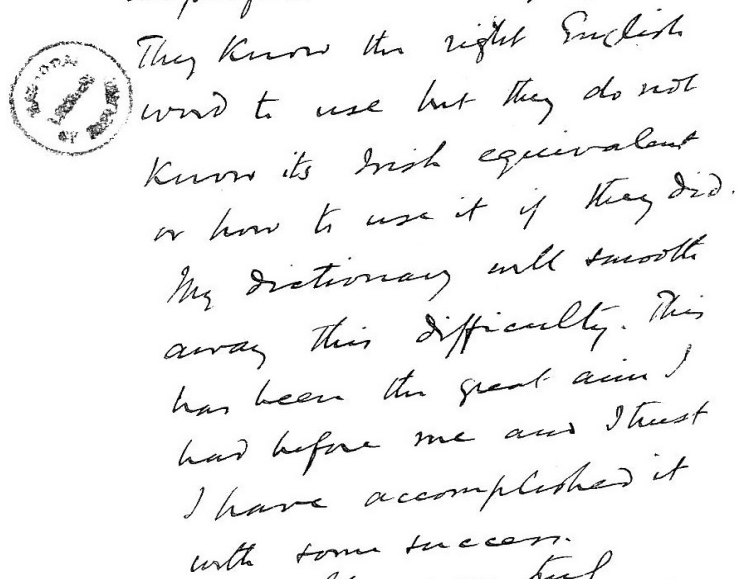 They know the right English
word to use but they do not
know its Irish equivalent
or how to use it if they did.
My dictionary will smooth
away this difficulty. This
has been the great aim I
had before me and I trust
I have accomplished it
with some success.
NATIONAL LIBRARY OF IRELAND